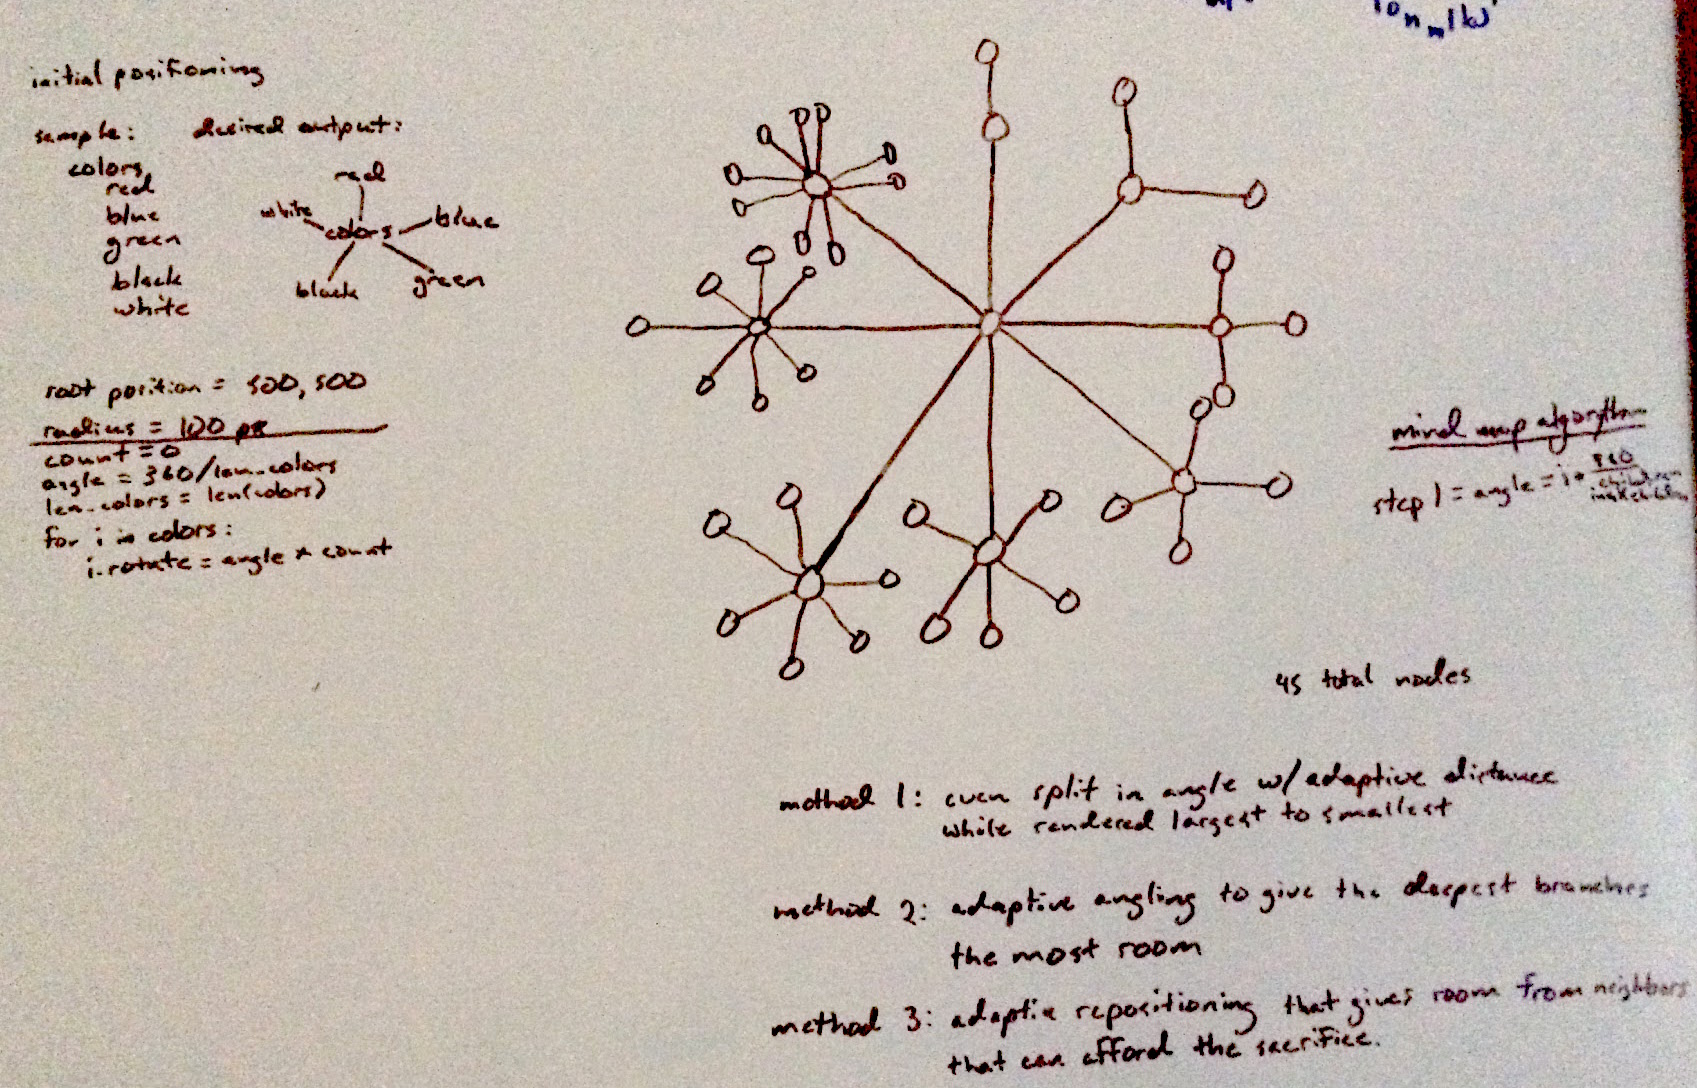 initial positioning
sample: desired output:
colors
red
blue
green
black
white
red
white
colors
blue
black
green
root position = 500, 500
radius = 100 px
count = 0
angle = 360/len_colors
len_colors = len(colors)
for i in colors:
i.rotate = angle * count
mind map algorythm
step 1 = angle = i *
45 total nodes
method 1: even split in angle w/adaptive distance
while rendered largest to smallest
method 2: adaptive angling to give the deepest branches
the most room
method 3: adaptive repositioning that gives room from neighbors
that can afford the sacrifice.